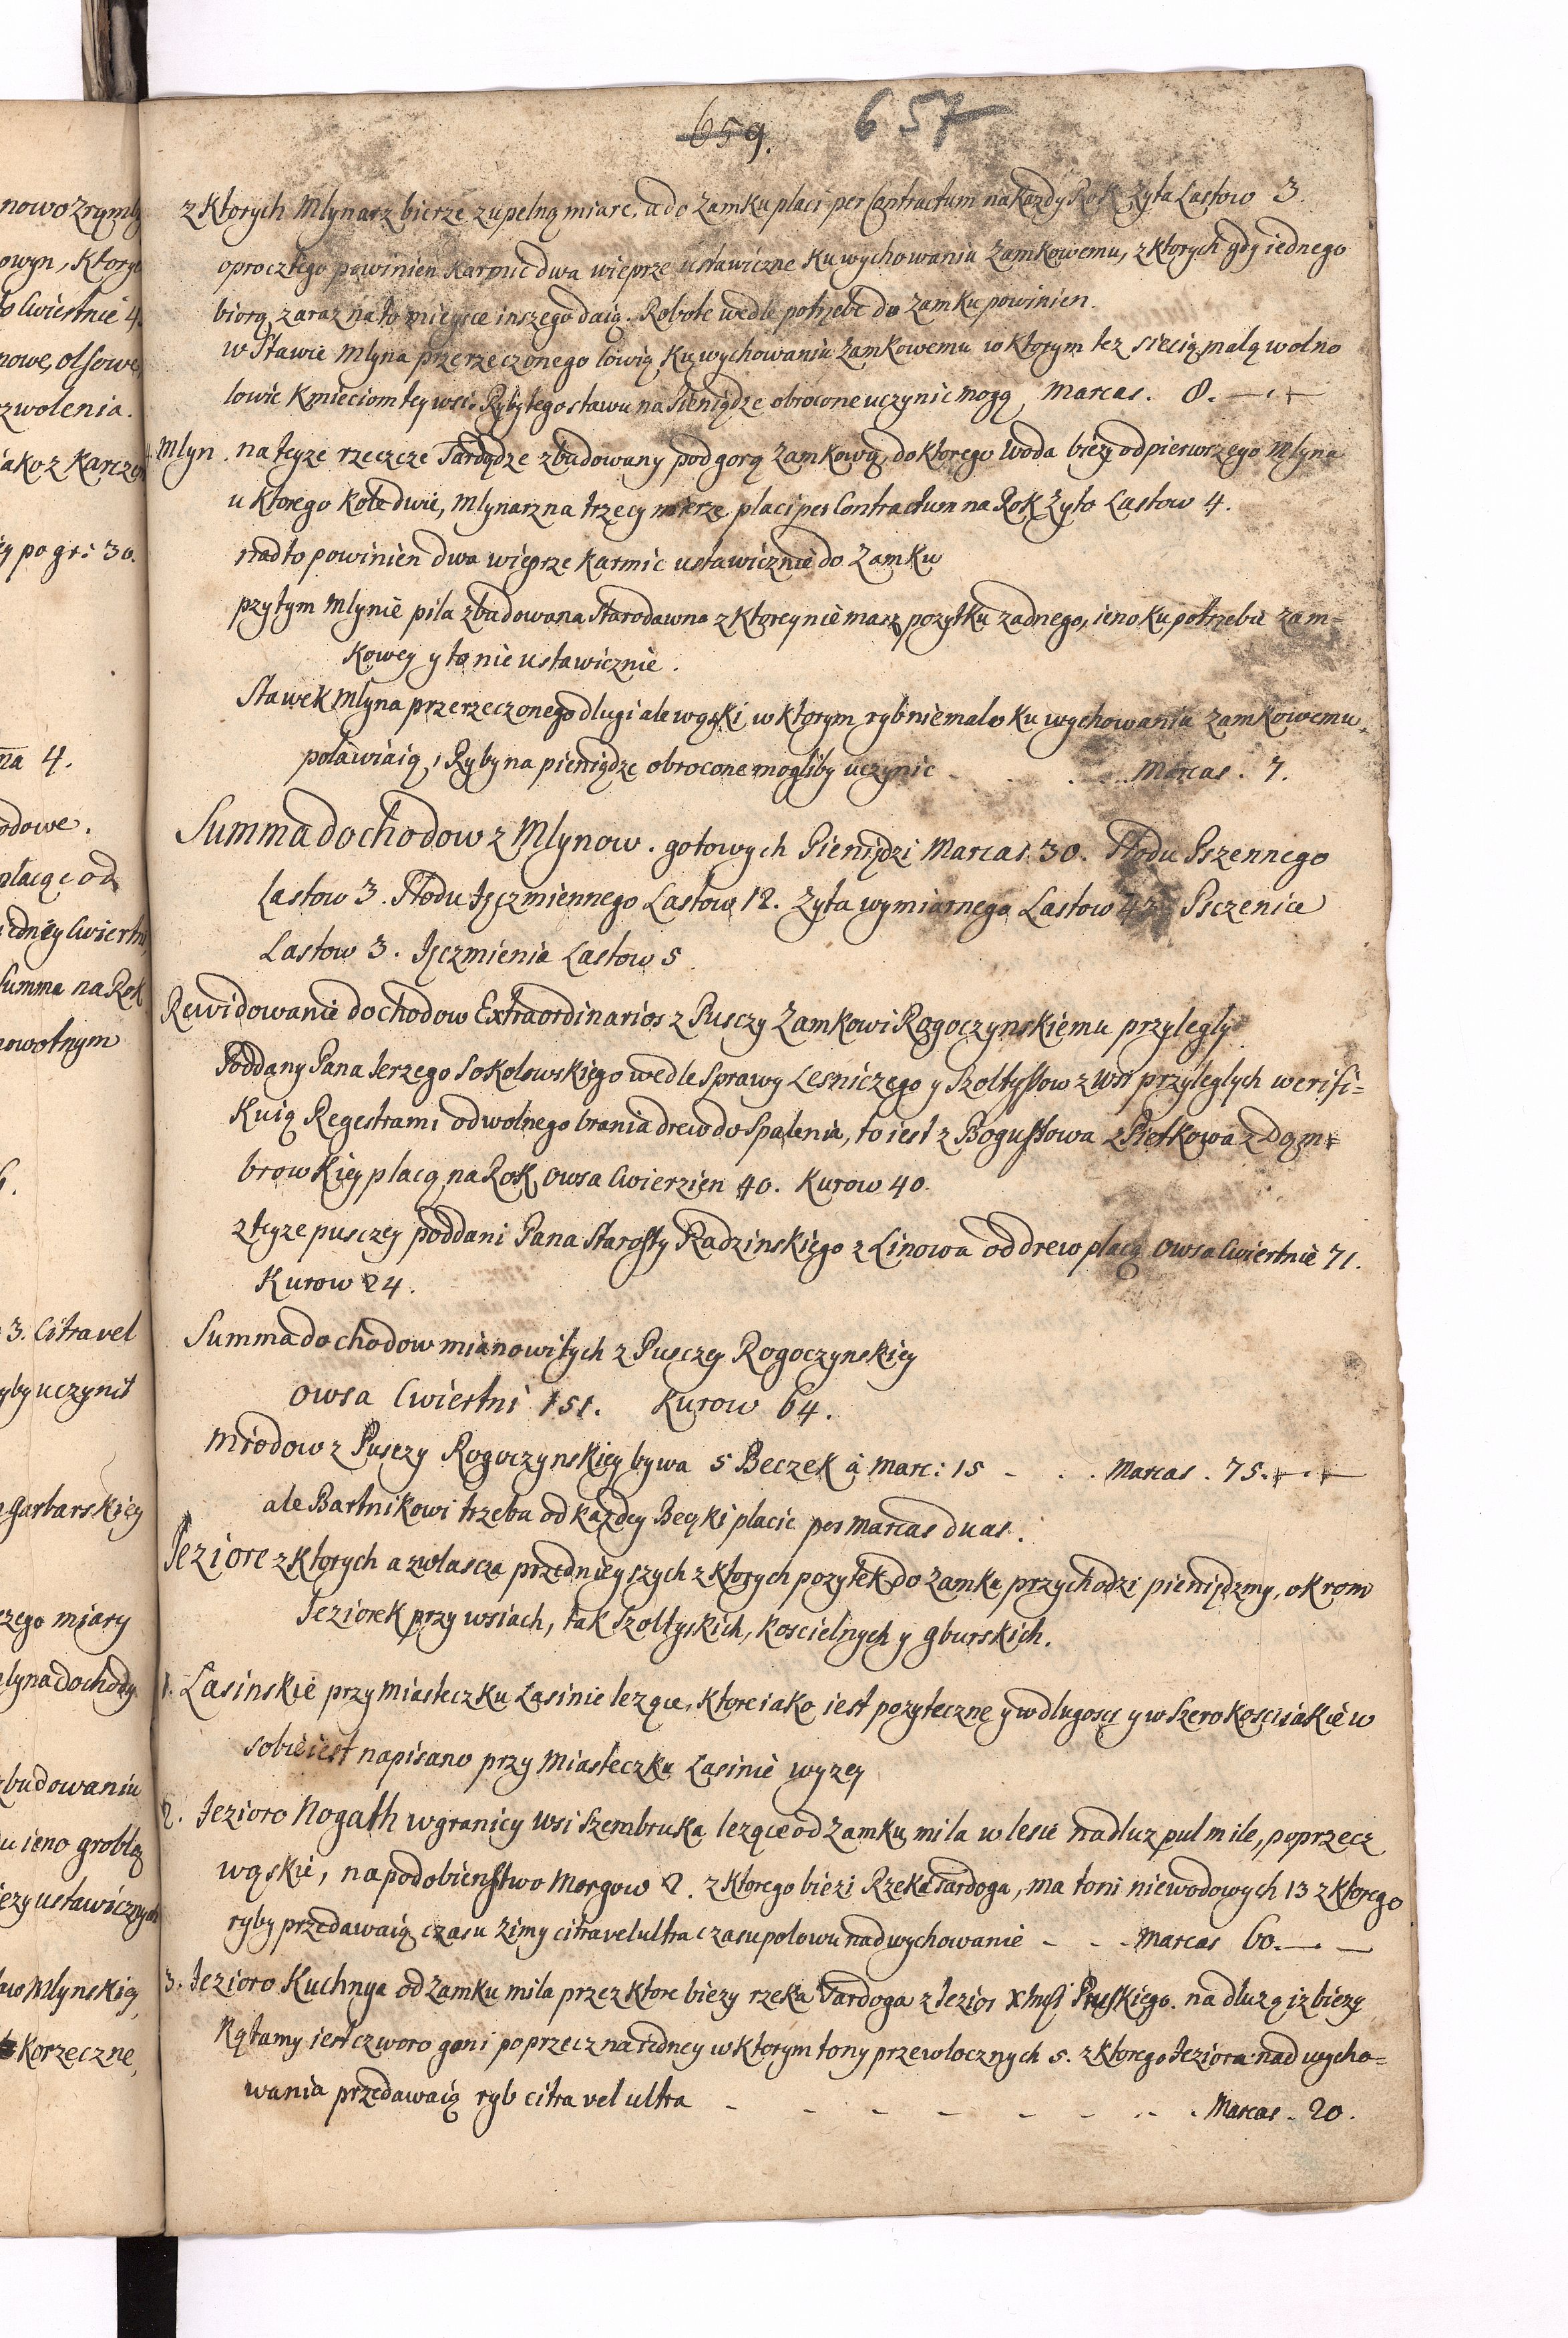 659. 657
z Ktorych Mlynarz bierze zupelną miarę, a do Zamku placi per Contractum na Kazdy Rok Zyta Lastow 3.
oprocz tego powinien Karmic dwa wieprze ustawiczne Ku wychowaniu Zamkowemu, z Ktorych gdy iednego
biorą zaraz na to mieysce inszego daią. Robote wedle potrzebe do Zamku powinien.
w Stawie Mlyna przerzeczonego lowią Ku wychowaniu Zamkowemu w Ktorym tez siecią malą wolno
lowic Kmieciom tey wsi. Ryby tego stawu na Pieniądze obrocone uczynic mogą Marcas. 8.
Mlyn na teyze rzeczce Tardądze zbudowany pod gorą Zamkową, do Ktorego Woda biezy od pierwszego Mlyna
u Ktorego Kole dwie, Mlynarz na trzecy mierze placi per Contractum na Rok Zyto Lastow 4.
nadto powinien dwa wieprze Karmic ustawicznie do Zamku
przytym Mlynie pila zbudowana Starodawna z Ktorey nie masz pozytku zadnego, ieno ku potrzebie zam-
Kowey y to nie ustawicznie.
Stawek Mlyna przerzeczonego dlugi ale wąski w Ktorym ryb niemalo ku wychowaniu zamkowemu
poławiaią, Ryby na pieniądze obrocone mogliby uczynic Marcas. 7.
Summa dochodow z Mlynow. gotowych Pieniędzi Marcas. 30. Słodu Pszennego
Lastow 3. Słodu Jęczmiennego Lastow 12. Zyta wymiarnego Lastow Psczenice
Lastow 3. Jęczmienia Lastow 5
Rewidowanie dochodow Extraordinarios z Pusczy Zamkowi Rogoczynskiemu przyległy
Poddany Pana Jerzego Sokolowskiego wedle Sprawy Lesniczego y Szoltyssow z Wsi przyleglych werifi-
Kuią Regestrami od wolnego brania drew do Spalenia, to iest z Bogussowa z Pietkowa z Dąm-
browkiey placą na Rok owsa Cwierzien 40. Kurow 40
z teyze pusczey poddani Pana Starosty Radzinskiego z Linowa od drew placą Owsa Cwiertnie 71.
Kurow 24.
Summa dochodow mianowitych z Pusczey Rogoczynskiey
Owsa Cwiertni 151. Kurow 64.
Miodow z Pusczy Rogoczynskiey bywa 5 Beczek á Marc: 15 Marcas. 75.
ale Bartnikowi trzeba od kazdey Beczki placic per Marcas duas.
Jeziore z Ktorych a zwlascza przednieyszych z Ktorych pozytek do Zamku przychodzi pieniędzmy, okrom
Jeziorek przy wsiach, tak Szoltyskich, Koscielnych y gburskich.
1. Lasinskie przy Miasteczku Lasinie lezące, Ktore iako iest pozyteczne y w dlugosci y w Szerokosci iakie w
sobie iest napisano przy Miasteczku Lasinie wyzey
2. Jezioro Nogath w granicy wsi Szembruka lezące od Zamku mila w lesie nadluz pul mile, poprzecz
wąskie, na podobienstwo Morgow 2. z Ktorego biezi Rzeka Tardoga, ma toni niewodowych 13 z Ktorego
ryby przedawaią czasu Zimy citra vel ultra czasu polowu nad wychowanie Marcas 60.
3. Jezioro Kuchnya od Zamku mila przez Ktore biezy rzeka Tardoga z Jezior Pruskiego. na dluzą iz biezy
Kątamy iest czworo goni poprzecz na iedney w Ktorym tony przewlocznych 5. z Ktorego Jeziora nad wycho-
wania przedawaią ryb citra vel ultra Marcas. 20.